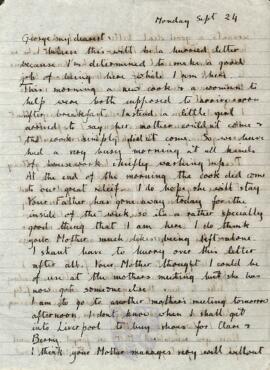 Monday Sept 24
George my dearest
I believe this will be a hurried letter
because I'm determined to make a good
job of being here while I am here
This morning a new cook & a woman to
help were both supposed to arrive soon
after breakfast. Instead a little girl
arrived to say her mother couldn't come &
the cook simply didn't come. So we have
had a very busy morning at all kinds
of housework chiefly washing up.
At the end of the morning the cook did come
to our great relief. I do hope she will stay
Your Father has gone away today for the
inside of the week so it's a rather specially
good thing that I am here. I do think
your Mother much dislikes being left alone
I shant have to hurry over this letter
after all. Your Mother thought I could be
of use at the mothers meeting but she has
now got someone else.
I am to go to another mother's meeting tomorrow
afternoon. I don't know when I shall get
into Liverpool to buy shoes for Clare &
Berry.
I think your Mother manages very well without